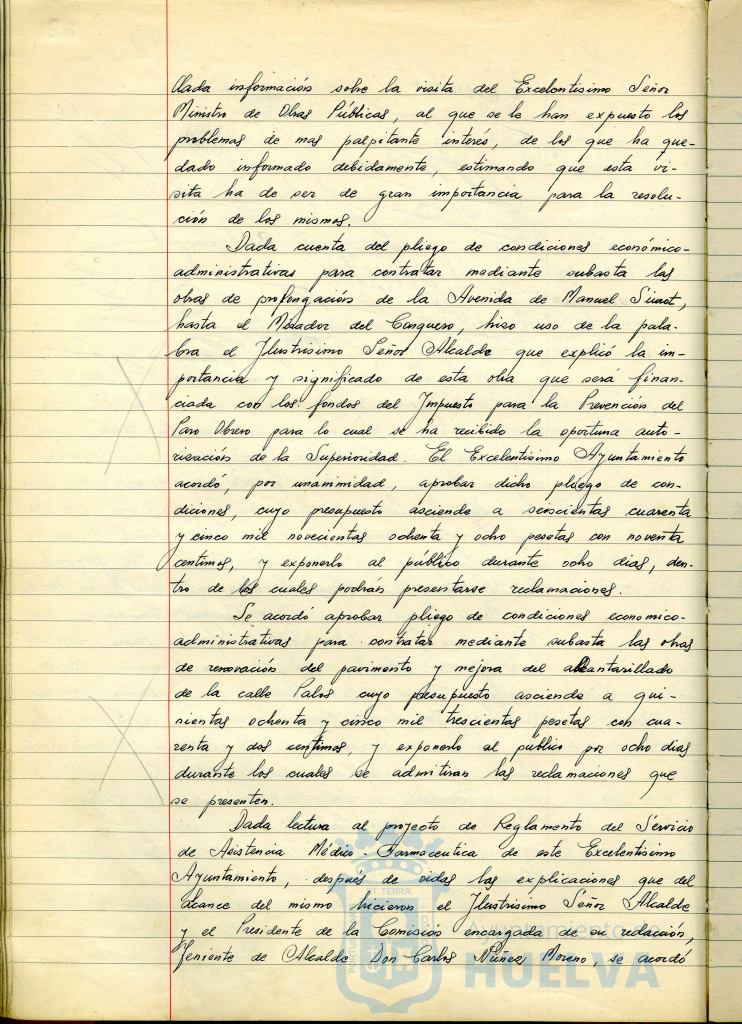 llada información sobre la visita del Excelentísimo Señor
Ministro de Obras Públicas, al que se le han expuesto los
problemas de mas palpitante interés, de los que ha que-
dado informado debidamente, estimando que esta vi-
sita ha de ser de gran importancia para la resolu-
ción de los mismos.
Dada cuenta del pliego de condiciones económico-
administrativas para contratar mediante subasta las
obras de prolongación de la Avenida de Manuel Siurot,
hasta el Mirador del Conquero, hizo uso de la pala-
bra el Ilustrísimo Señor Alcalde que explicó la im-
portancia y significado de esta obra que será finan-
ciada con los fondos del Impuesto para la Prevención del
Paro Obrero para lo cual se ha recibido la oportuna auto-
rización de la Superioridad. El Excelentísimo Ayuntamiento
acordó, por unanimidad, aprobar dicho pliego de con-
diciones, cuyo presupuesto asciende a seiscientas cuarenta
y cinco mil novecientas ochenta y ocho pesetas con noventa
centimos, y exponerlo al público durante ocho dias, den-
tro de los cuales podrán presentarse reclamaciones.
Se acordó aprobar pliego de condiciones economico-
administrativas para contratar mediante subasta las obras
de renovación del pavimento y mejora del alcantarillado
de la calle Palos cuyo presupuesto asciende a qui-
nientas ochenta y cinco mil trescientas pesetas con cua-
renta y dos centimos, y exponerlo al público por ocho dias
durante los cuales se admitiran las reclamaciones que
se presenten.
Dada lectura al proyecto de Reglamento del Servicio
de Asistencia Médico-Farmaceutica de este Excelentísimo
Ayuntamiento, después de oidas las explicaciones que del
alcance del mismo hicieron el Ilustrísimo Señor Alcalde
y el Presidente de la Comisión encargada de su redacción,
Teniente de Alcalde Don Carlos Núñez Moreno, se acordó
HUELVA